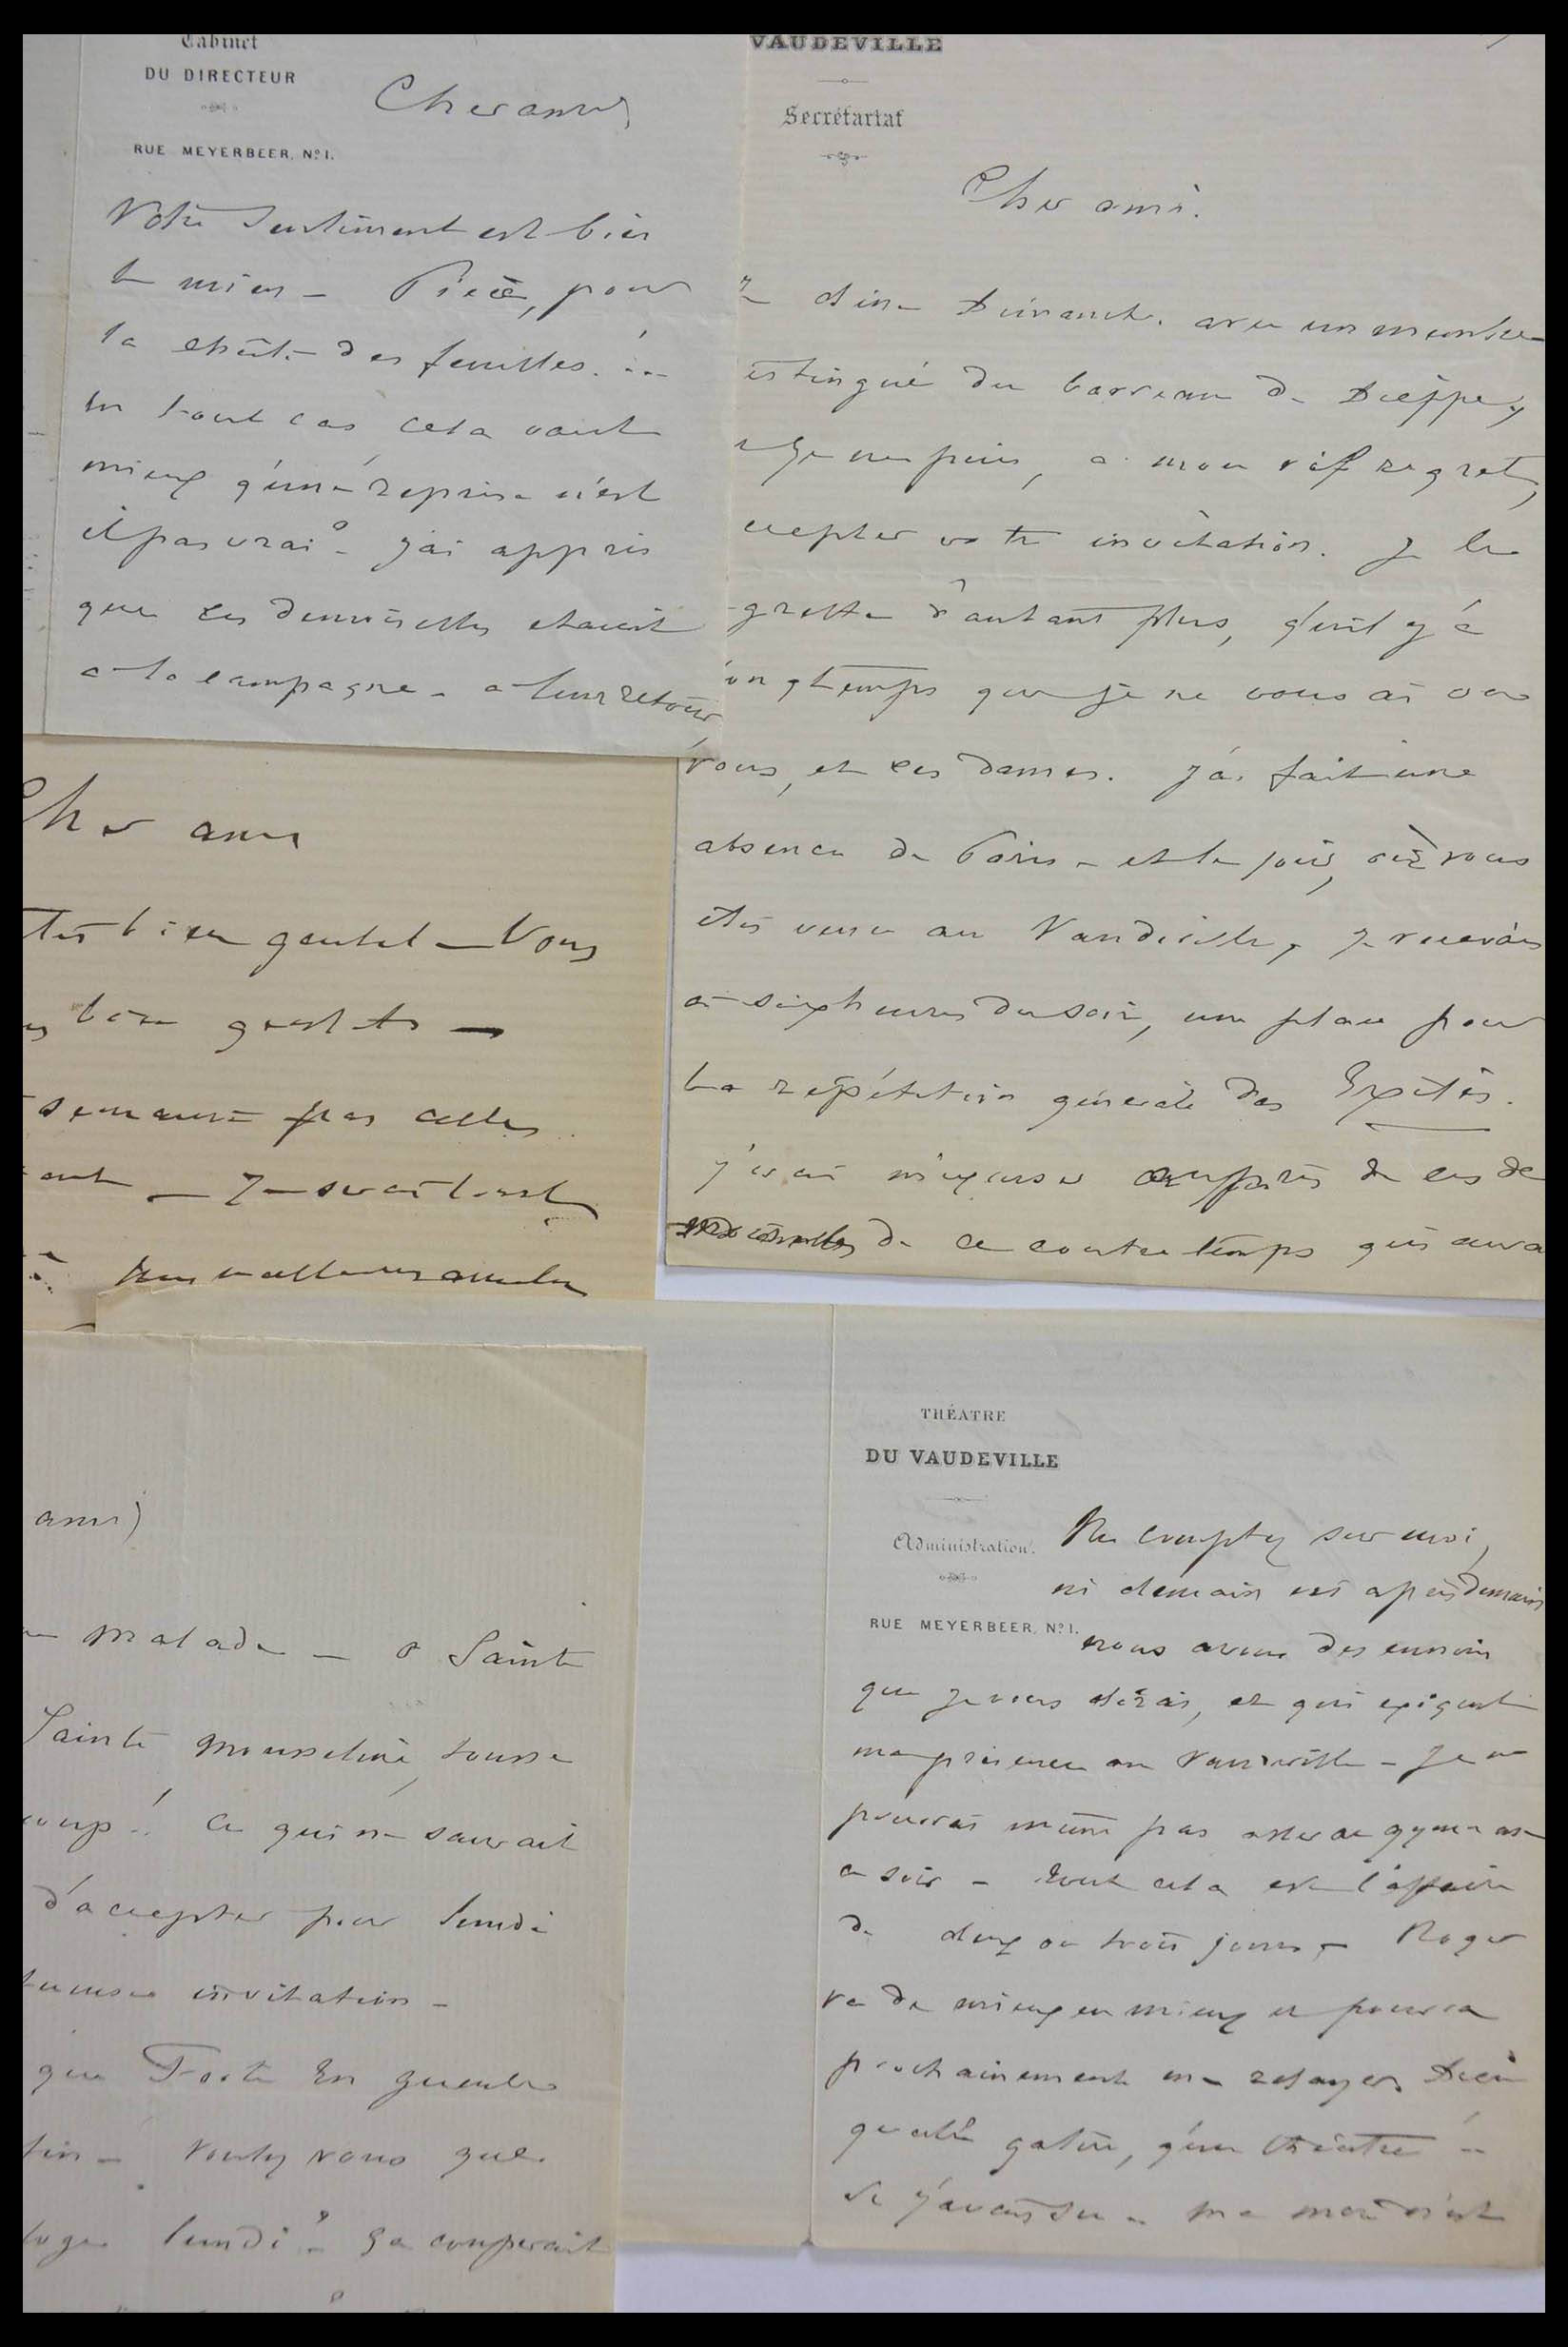 Cabinet
DU DIRECTEUR
Cher ami,
RUE MEYERBEER, Nº 1.
Votre sentiment est bien
le mien - Pièce, pour
la chûte des feuilles...
en tout cas cela vaut
mieux qu'une reprise n'est
il pas vrai? - j'ai appris
que ces demoiselles etaient
a la campagne - a leur retour
VAUDEVILLE
Secrétariat
Cher ami.
dine Dimanche, avec un membre
istingué du barreau de Dieppe,
je ne puis, a mon vif regret,
ccepter votre invitation. Je le
grette d'autant plus, qu'il y a
ongtemps que je ne vous ai vu
vous, et ces dames. J'ai fait une
absence de Paris - et le jour, où vous
êtes venu au Vaudeville, je recevais
a six heures du soir, une place pour
la répétition générale des Exilés.
j'irai m'excuser auprès de ces de
de ce contre temps qui aura
Cher ami
tes bien gentil - Vous
bien gentils -
semaine pas celle
ant - Je serai
ami)
malade - o Sainte
Sainte Mousseline, tousse
coup! ce qui ne saurait
d'accepter pour lundi
tueuse invitation -
que Forte en gueule
tin - voulez vous que
loge lundi? - ça couperait
THÉATRE
DU VAUDEVILLE
Administration.
RUE MEYERBEER, Nº 1.
Ne comptez sur moi,
ni demain ni après demain
nous avons des ennuis
que je vous dirai, et qui exigent
ma présence au Vaudeville - Je ne
pourrai même pas aller au gymnase
ce soir - tout cela est l'affaire
de deux ou trois jours - Roger
va de mieux en mieux et pourra
prochainement me relayer. Dieu
quelle galère, qu'un théâtre!..
Si j'avais su.. ma mère n'est